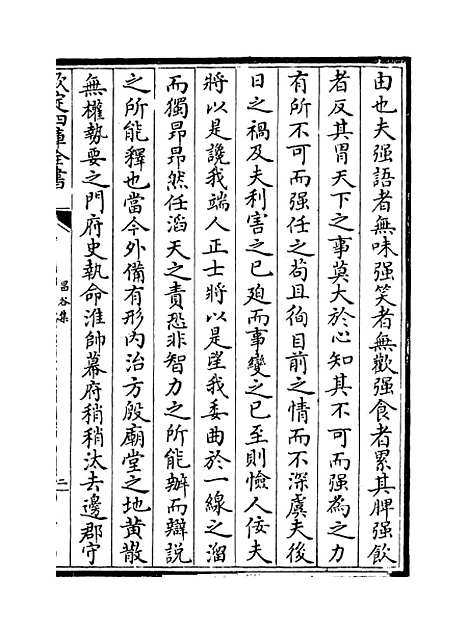 由也夫强語者無味强笑者無歡强食者累其脾强飲
者反其胃天下之事莫大於心知其不可而强為之力
有所不可而强任之苟且徇目前之情而不深虞夫後
日之禍及夫利害之已迫而事變之已至則憸人佞夫
將以是讒我端人正士將以是望我委曲於一線之溜
而獨昻昻然任滔天之責恐非智力之所能辦而辯説
之所能釋也當今外備有形内治方殷廟堂之地黄散
無權勢要之門府史執命淮帥幕府稍稍汰去邊郡守
欽定四庫全書
昌谷集
二